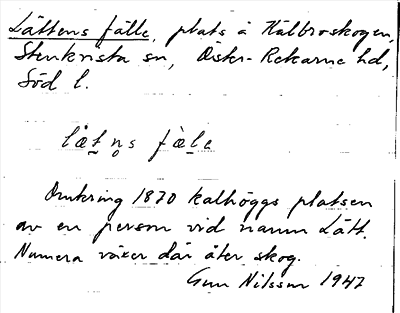 Lättens fälle, plats å Hälbroskogen,
Stenkvista sn, Öster-Rekarne hd,
Söd l.
Omkring 1870 kalhöggs platsen
av en person vid namn Lätt.
Numera växer där åter skog.
Gun Nilsson 1947